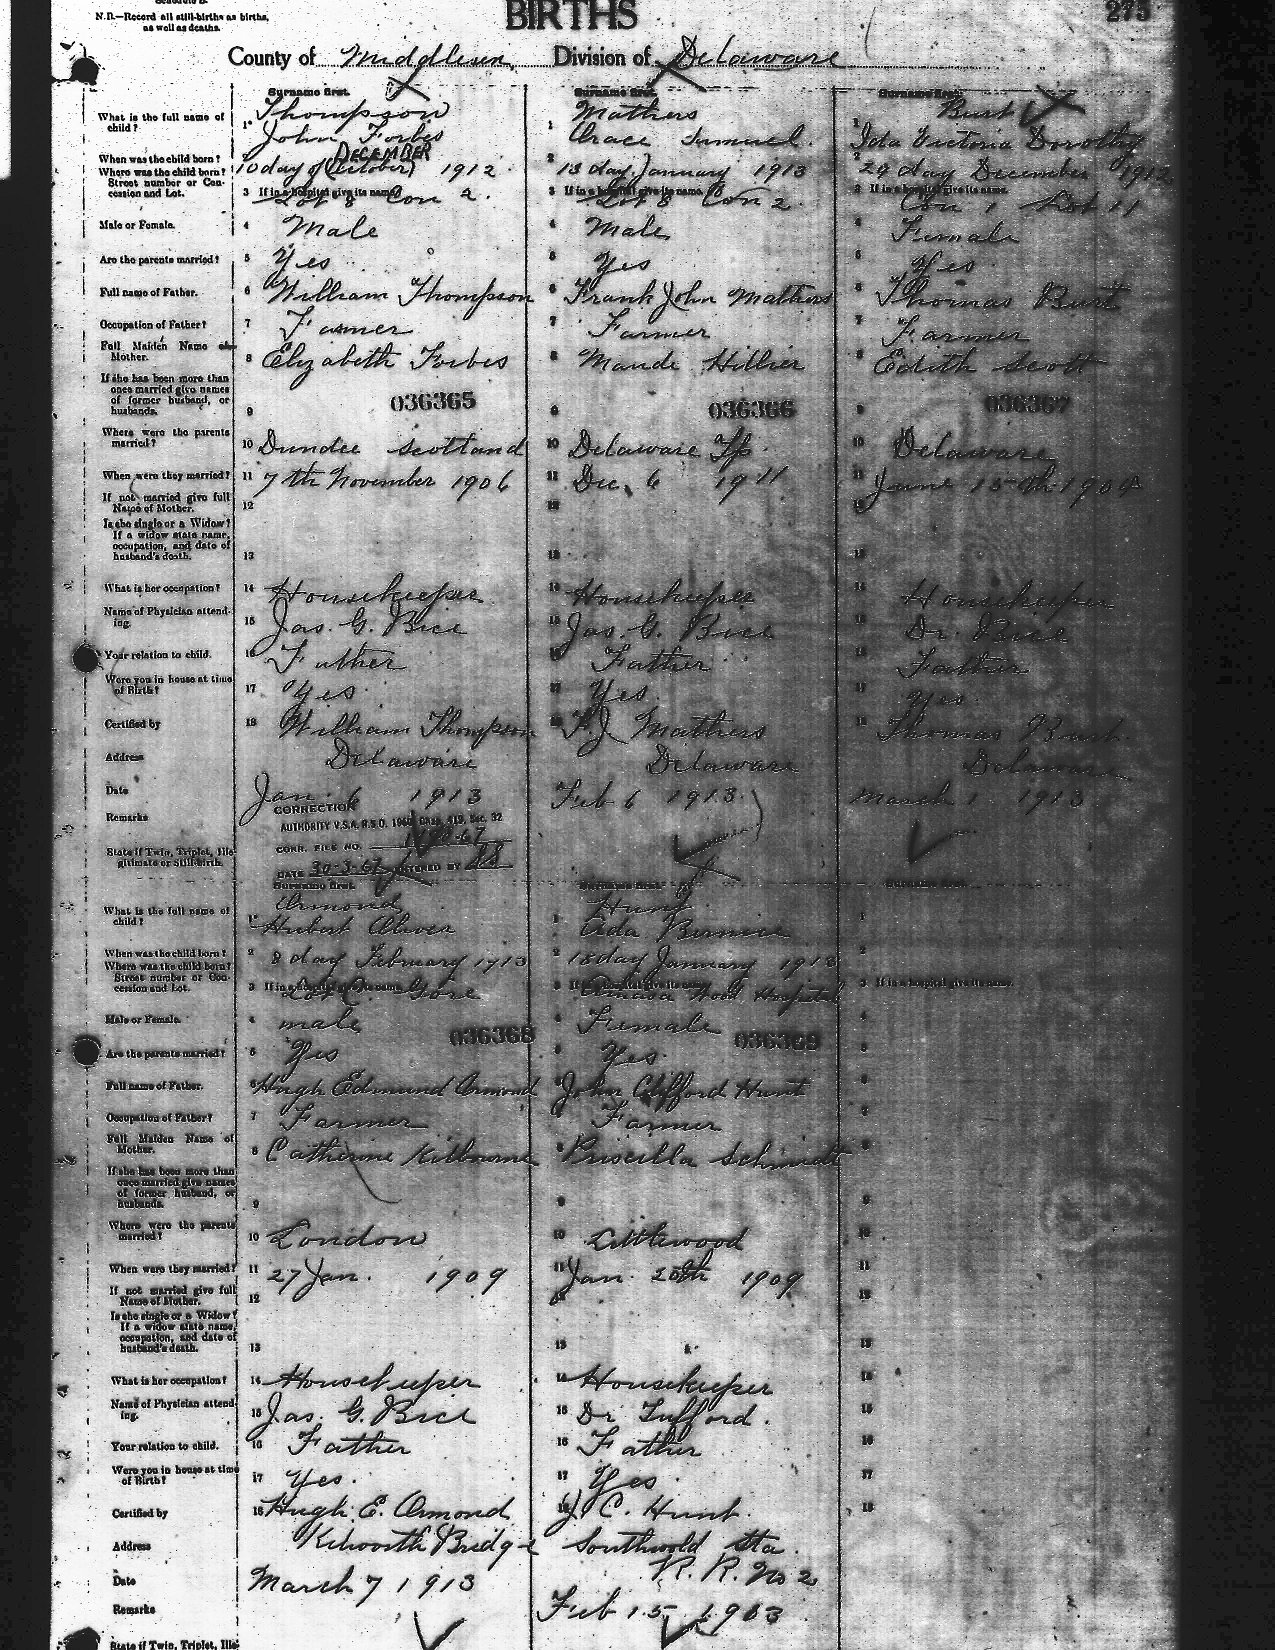 Schedule B.
N.B.—Record all still-births as births,
as well as deaths.
BIRTHS
275
County of Middlesex, Division of Delaware
Surname first. Surname first. Surname first.
What is the full name of child? 1 Thompson John Forbes
1 Mathers Grace Samuel.
1 Burt Ida Victoria Dorothy
When was the child born? 2 10 day of (October) DECEMBER 1912
2 13 day January 1913
2 29 day December 1912
Where was the child born? Street number or Concession and Lot. 3 If in a hospital give its name. Lot 8 Con 2.
3 If in a hospital give its name. Lot 8 Con 2.
3 If in a hospital give its name. Con 1 Lot 11
Male or Female. 4 Male
4 Male
4 Female
Are the parents married? 5 Yes
5 Yes
5 Yes
Full name of Father. 6 William Thompson
6 Frank John Mathers
6 Thomas Burt
Occupation of Father? 7 Farmer
7 Farmer
7 Farmer
Full Maiden Name of Mother. 8 Elizabeth Forbes
8 Maude Hillier
8 Edith Scott
If she has been more than once married give names of former husband, or husbands. 9
036365 036366 036367
Where were the parents married? 10 Dundee Scotland
10 Delaware Tp.
10 Delaware
When were they married? 11 7th November 1906
11 Dec. 6 1911
11 June 15th 1904
If not married give full Name of Mother. 12
Is she single or a Widow? If a widow state name, occupation, and date of husband's death. 13
What is her occupation? 14 Housekeeper
14 Housekeeper
14 Housekeeper
Name of Physician attending. 15 Jas. G. Bice
15 Jas. G. Bice
15 Dr. Bice
Your relation to child. 16 Father
16 Father
16 Father
Were you in house at time of Birth? 17 Yes
17 Yes.
17 Yes.
Certified by 18 William Thompson
18 F. J. Mathers
18 Thomas Burt.
Address Delaware
Delaware
Delaware
Date Jan. 6 1913
Feb 6 1913.
March 1 1913
Remarks
CORRECTION
AUTHORITY V.S.A. R.S.O. 1960 Chap. 419, Sec. 32
CORR. FILE NO.
DATE 30-3-67 ENTERED BY
State if Twin, Triplet, Illegitimate or Still-birth.
Surname first. Surname first. Surname first.
What is the full name of child? 1 Ormond Hubert Oliver
1 Hunt Ada Bernice
1
When was the child born? 2 8 day February 1913
2 18 day January 1913
2
Where was the child born? Street number or Concession and Lot. 3 If in a hospital give its name. Lot C. Gore
3 If in a hospital give its name. Amasa Wood Hospital
3 If in a hospital give its name.
Male or Female. 4 male
4 Female
4
036368 036369
Are the parents married? 5 Yes
5 Yes.
5
Full name of Father. 6 Hugh Edmund Ormond
6 John Clifford Hunt
6
Occupation of Father? 7 Farmer
7 Farmer
7
Full Maiden Name of Mother. 8 Catherine Kilbourne
8 Priscilla Schmidt
8
If she has been more than once married give names of former husband, or husbands. 9
9
9
Where were the parents married? 10 London
10 Littlewood
10
When were they married? 11 27 Jan. 1909
11 Jan. 20th 1909
11
If not married give full Name of Mother. 12
12
12
Is she single or a Widow? If a widow state name, occupation, and date of husband's death. 13
13
13
What is her occupation? 14 Housekeeper
14 Housekeeper
14
Name of Physician attending. 15 Jas. G. Bice
15 Dr Tufford.
15
Your relation to child. 16 Father
16 Father
16
Were you in house at time of Birth? 17 Yes.
17 Yes.
17
Certified by 18 Hugh E. Ormond
18 J C. Hunt.
18
Address Kilworth Bridge
Southwold Sta.
R. R. No 2
Date March 7 1913
Feb 15, 1913
Remarks
State if Twin, Triplet, Ille-